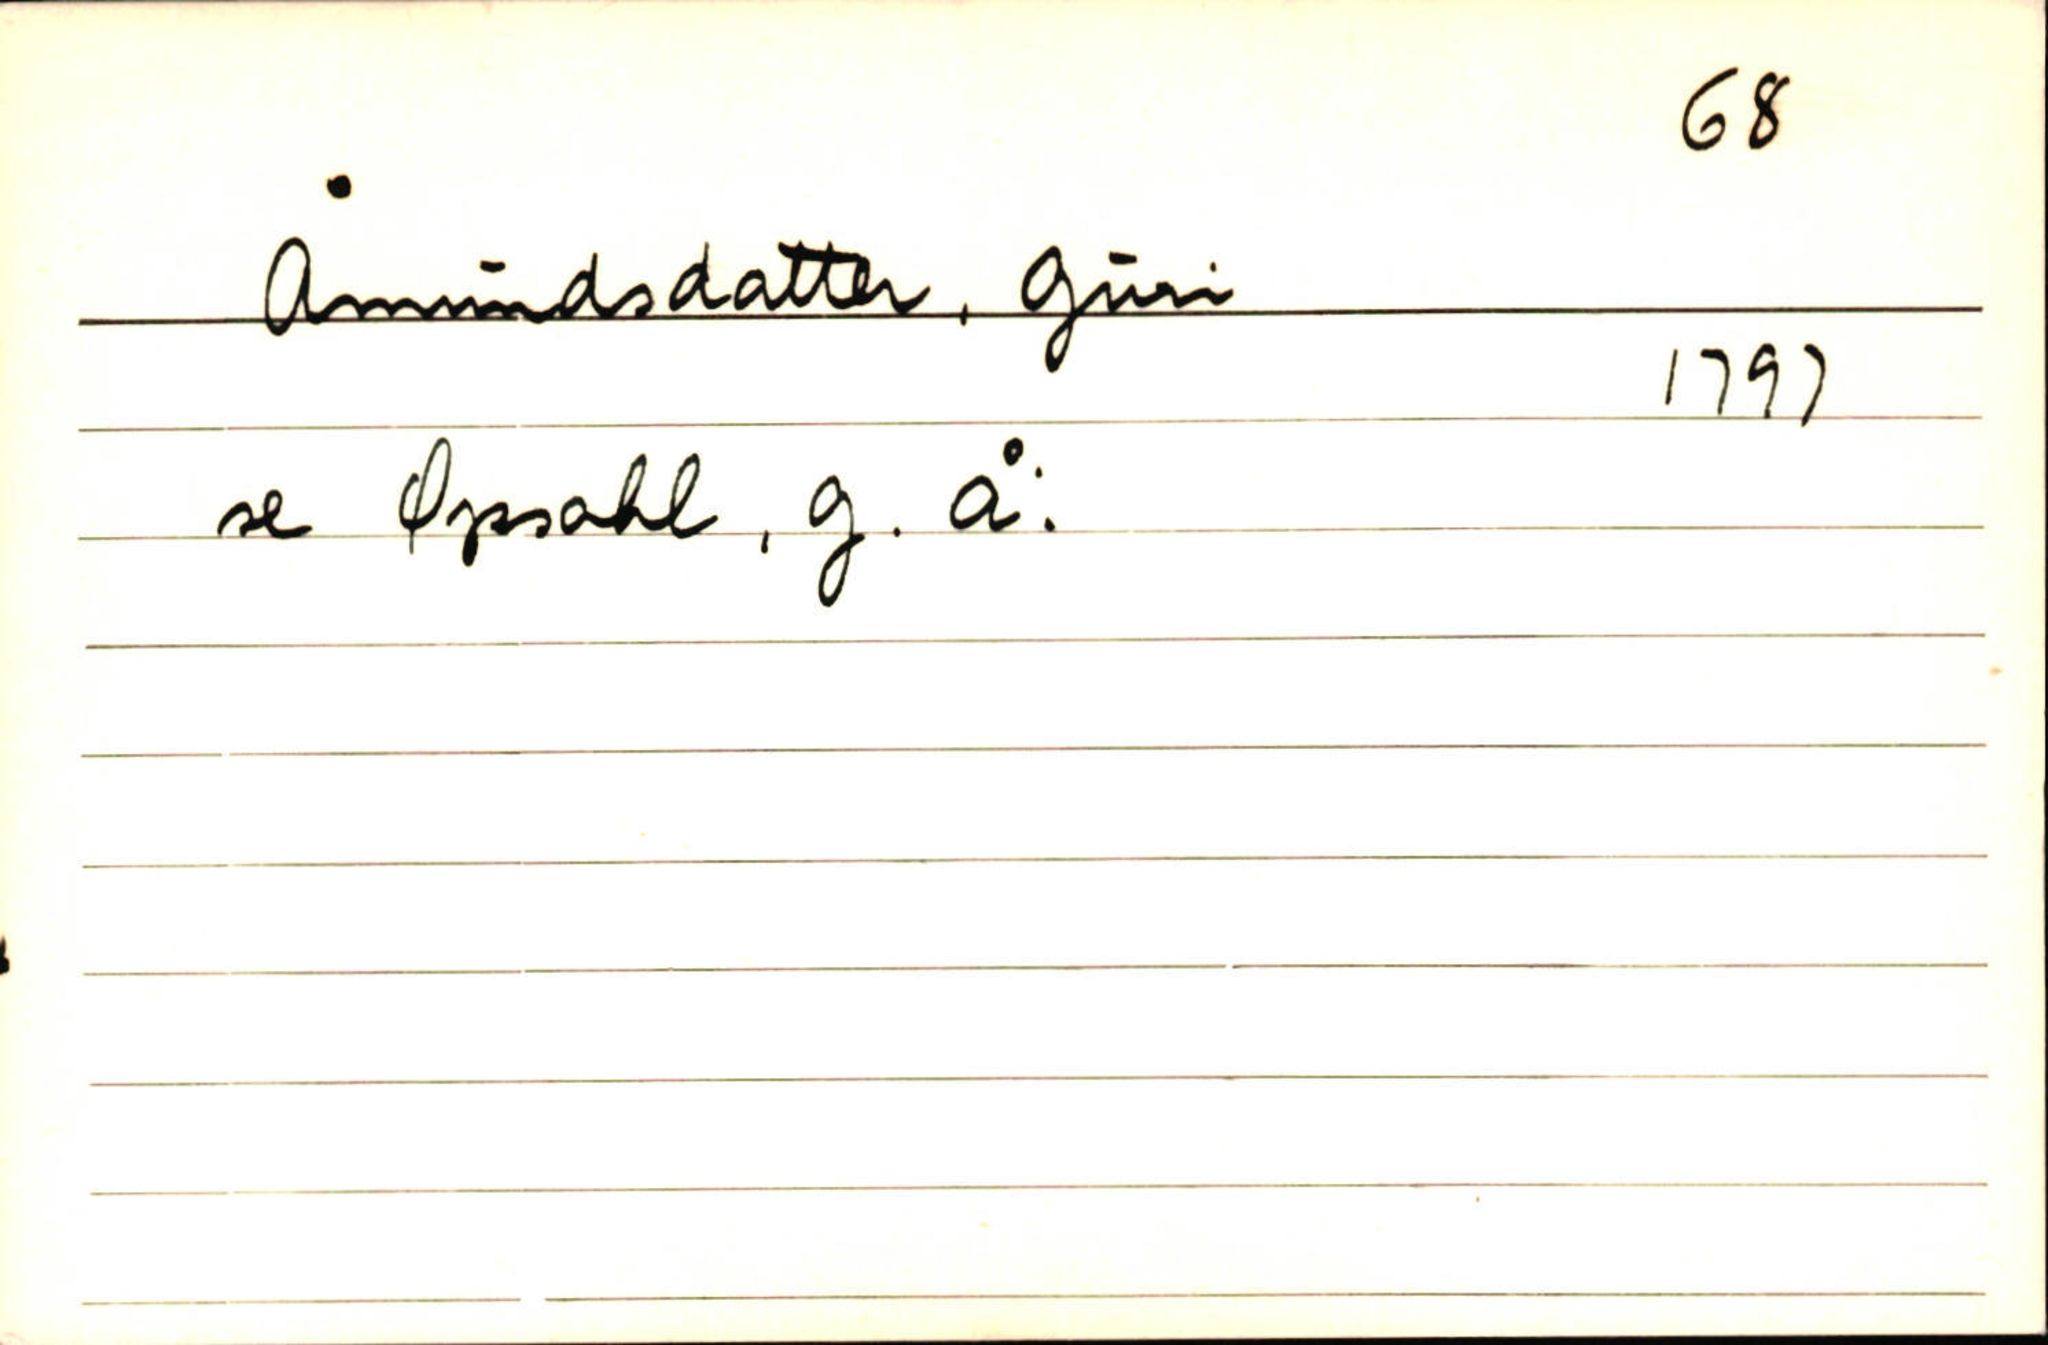 68
Åmundsdatter, Guri
1797
se Øpsahl, G. Å.